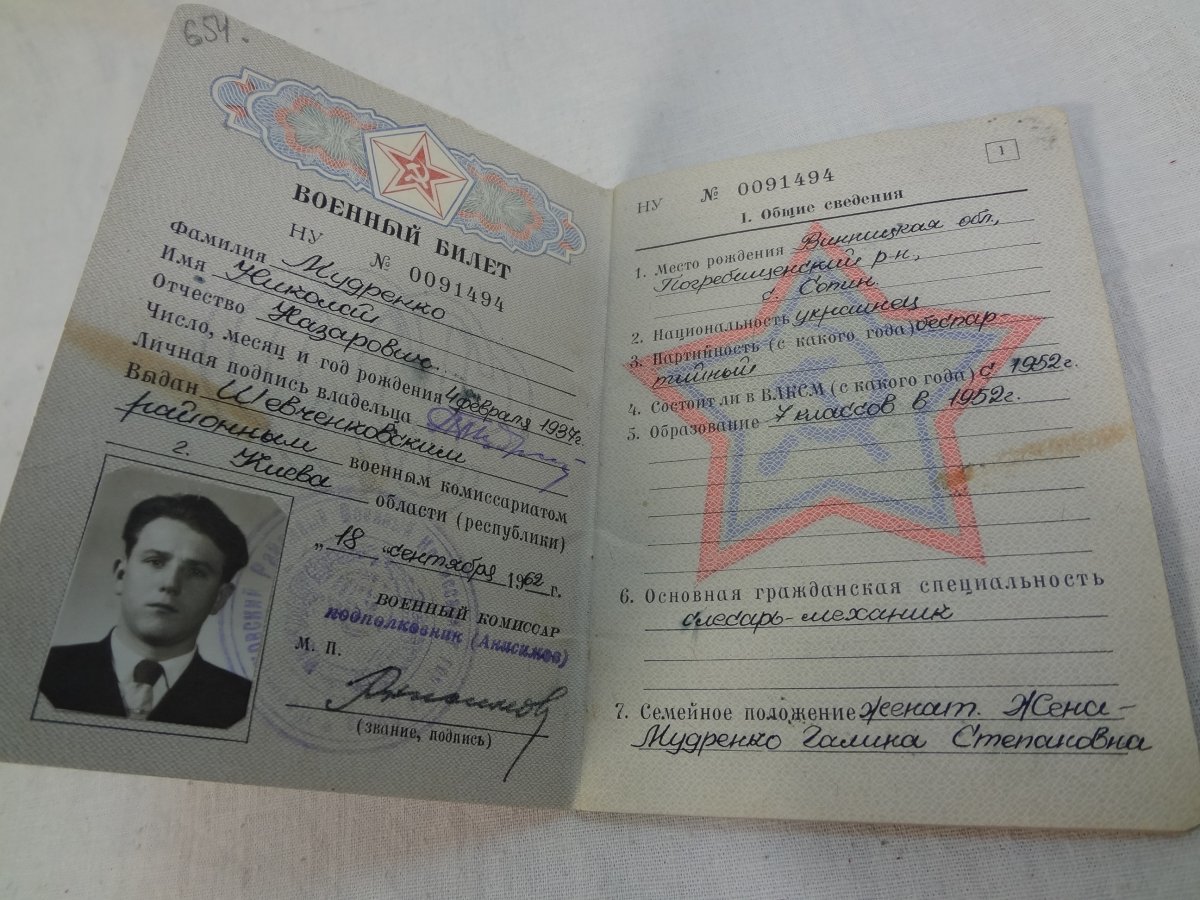 654.
ВОЕННЫЙ БИЛЕТ
НУ № 0091494
Фамилия Мудренко
Имя Николай
Отчество Назарович
Число, месяц и год рождения 4 февраля 1937г.
Личная подпись владельца
Выдан Шевченковским
районным военным комиссариатом
г. Киева области (республики)
„18 “ сентября 1962 г.
ВОЕННЫЙ КОМИССАР
подполковник (Анисимов)
М. П.
(звание, подпись)
1
НУ № 0091494
1. Общие сведения
1. Место рождения Винницкая обл.,
Погребищенский р-н,
с. Сопин.
2. Национальность украинец
3. Партийность (с какого года) беспар
тийный
4. Состоит ли в ВЛКСМ (с какого года) с 1952г.
5. Образование 7 классов в 1952г.
6. Основная гражданская специальность
слесарь-механик
7. Семейное положение женат. Жена-
Мудренко Галина Степановна